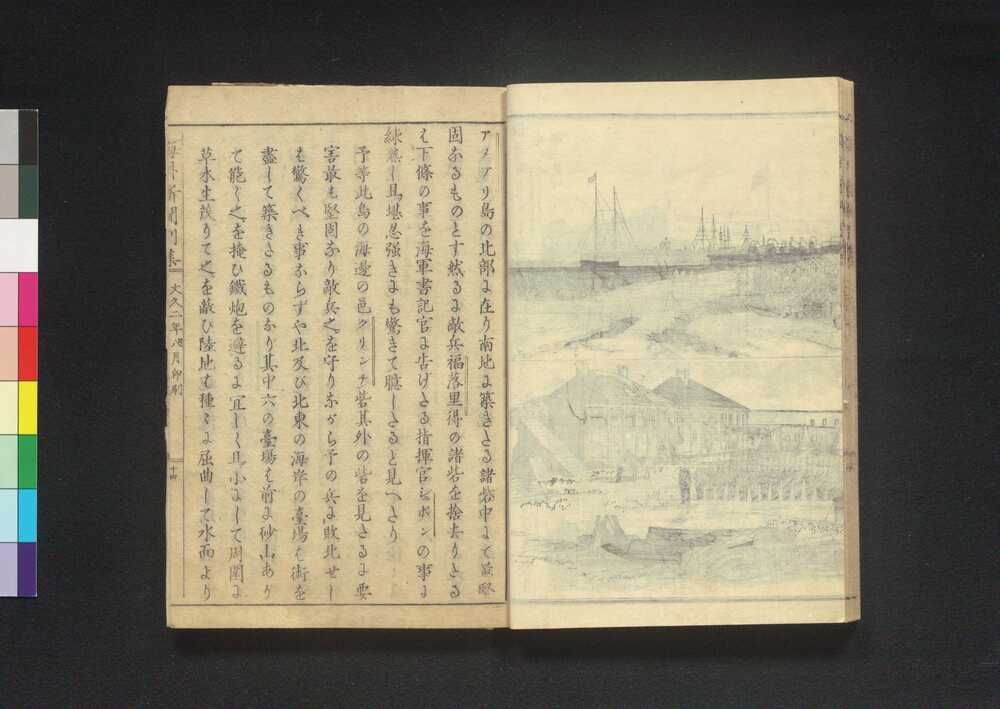 アメブリ島の北部に在り南地に築きたる諸砦中にて最堅
固なるものとす然るに敵兵福落里得の諸砦を捨去りたる
は下條の事を海軍書記官に告げたる指揮官シポンの事に
練熟し且堪忍強きにも驚きて臆したると見へたり
予等此島の海邊の邑クリンチ砦其外の砦を見たるに要
害最も堅固なり敵兵之を守りながら予の兵に敗北せし
は驚くべき事ならずや北及び北東の海岸の臺場は術を
盡して築きたるものなり其中六の臺場は前に砂山あり
て能く之を掩ひ鐵炮を避るに宜しく且小にして周圍に
草木生茂りて之を蔽ひ陸地は種々に屈曲して水面より
海外新聞別集
文久二年八月印刷
十四